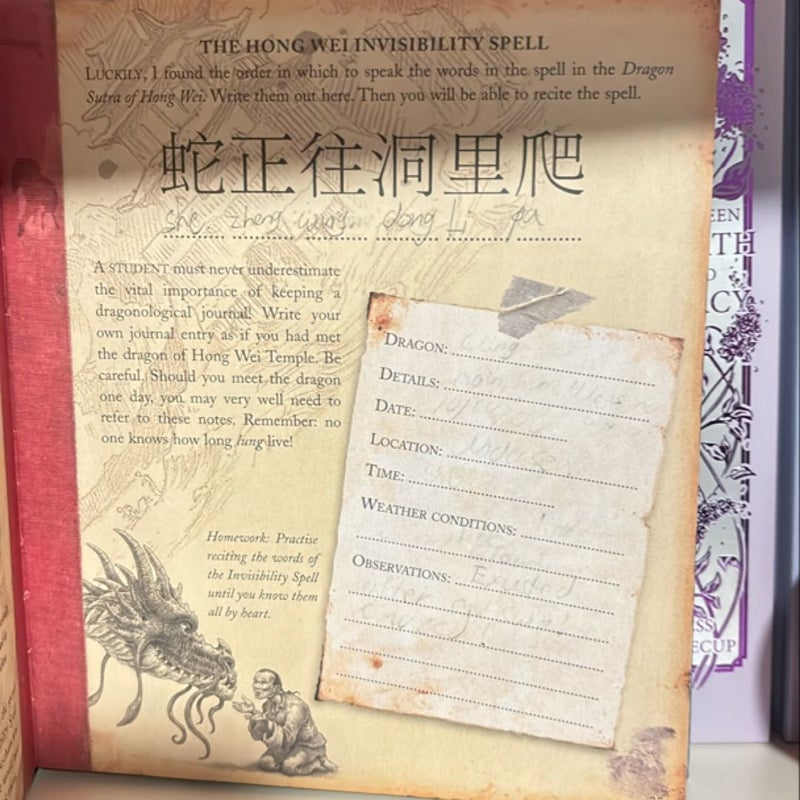 THE HONG WEI INVISIBILITY SPELL
LUCKILY, I found the order in which to speak the words in the spell in the Dragon
Sutra of Hong Wei. Write them out here. Then you will be able to recite the spell.
蛇正往洞里爬
she zheng wang dong Li pa
A STUDENT must never underestimate
the vital importance of keeping a
dragonological journal! Write your
own journal entry as if you had met
the dragon of Hong Wei Temple. Be
careful. Should you meet the dragon
one day, you may very well need to
refer to these notes. Remember: no
one knows how long lung live!
DRAGON: Lung
DETAILS:
DATE:
LOCATION:
TIME:
WEATHER CONDITIONS:
OBSERVATIONS:
Homework: Practise
reciting the words of
the Invisibility Spell
until you know them
all by heart.
EEN
TH
CY
ECUP